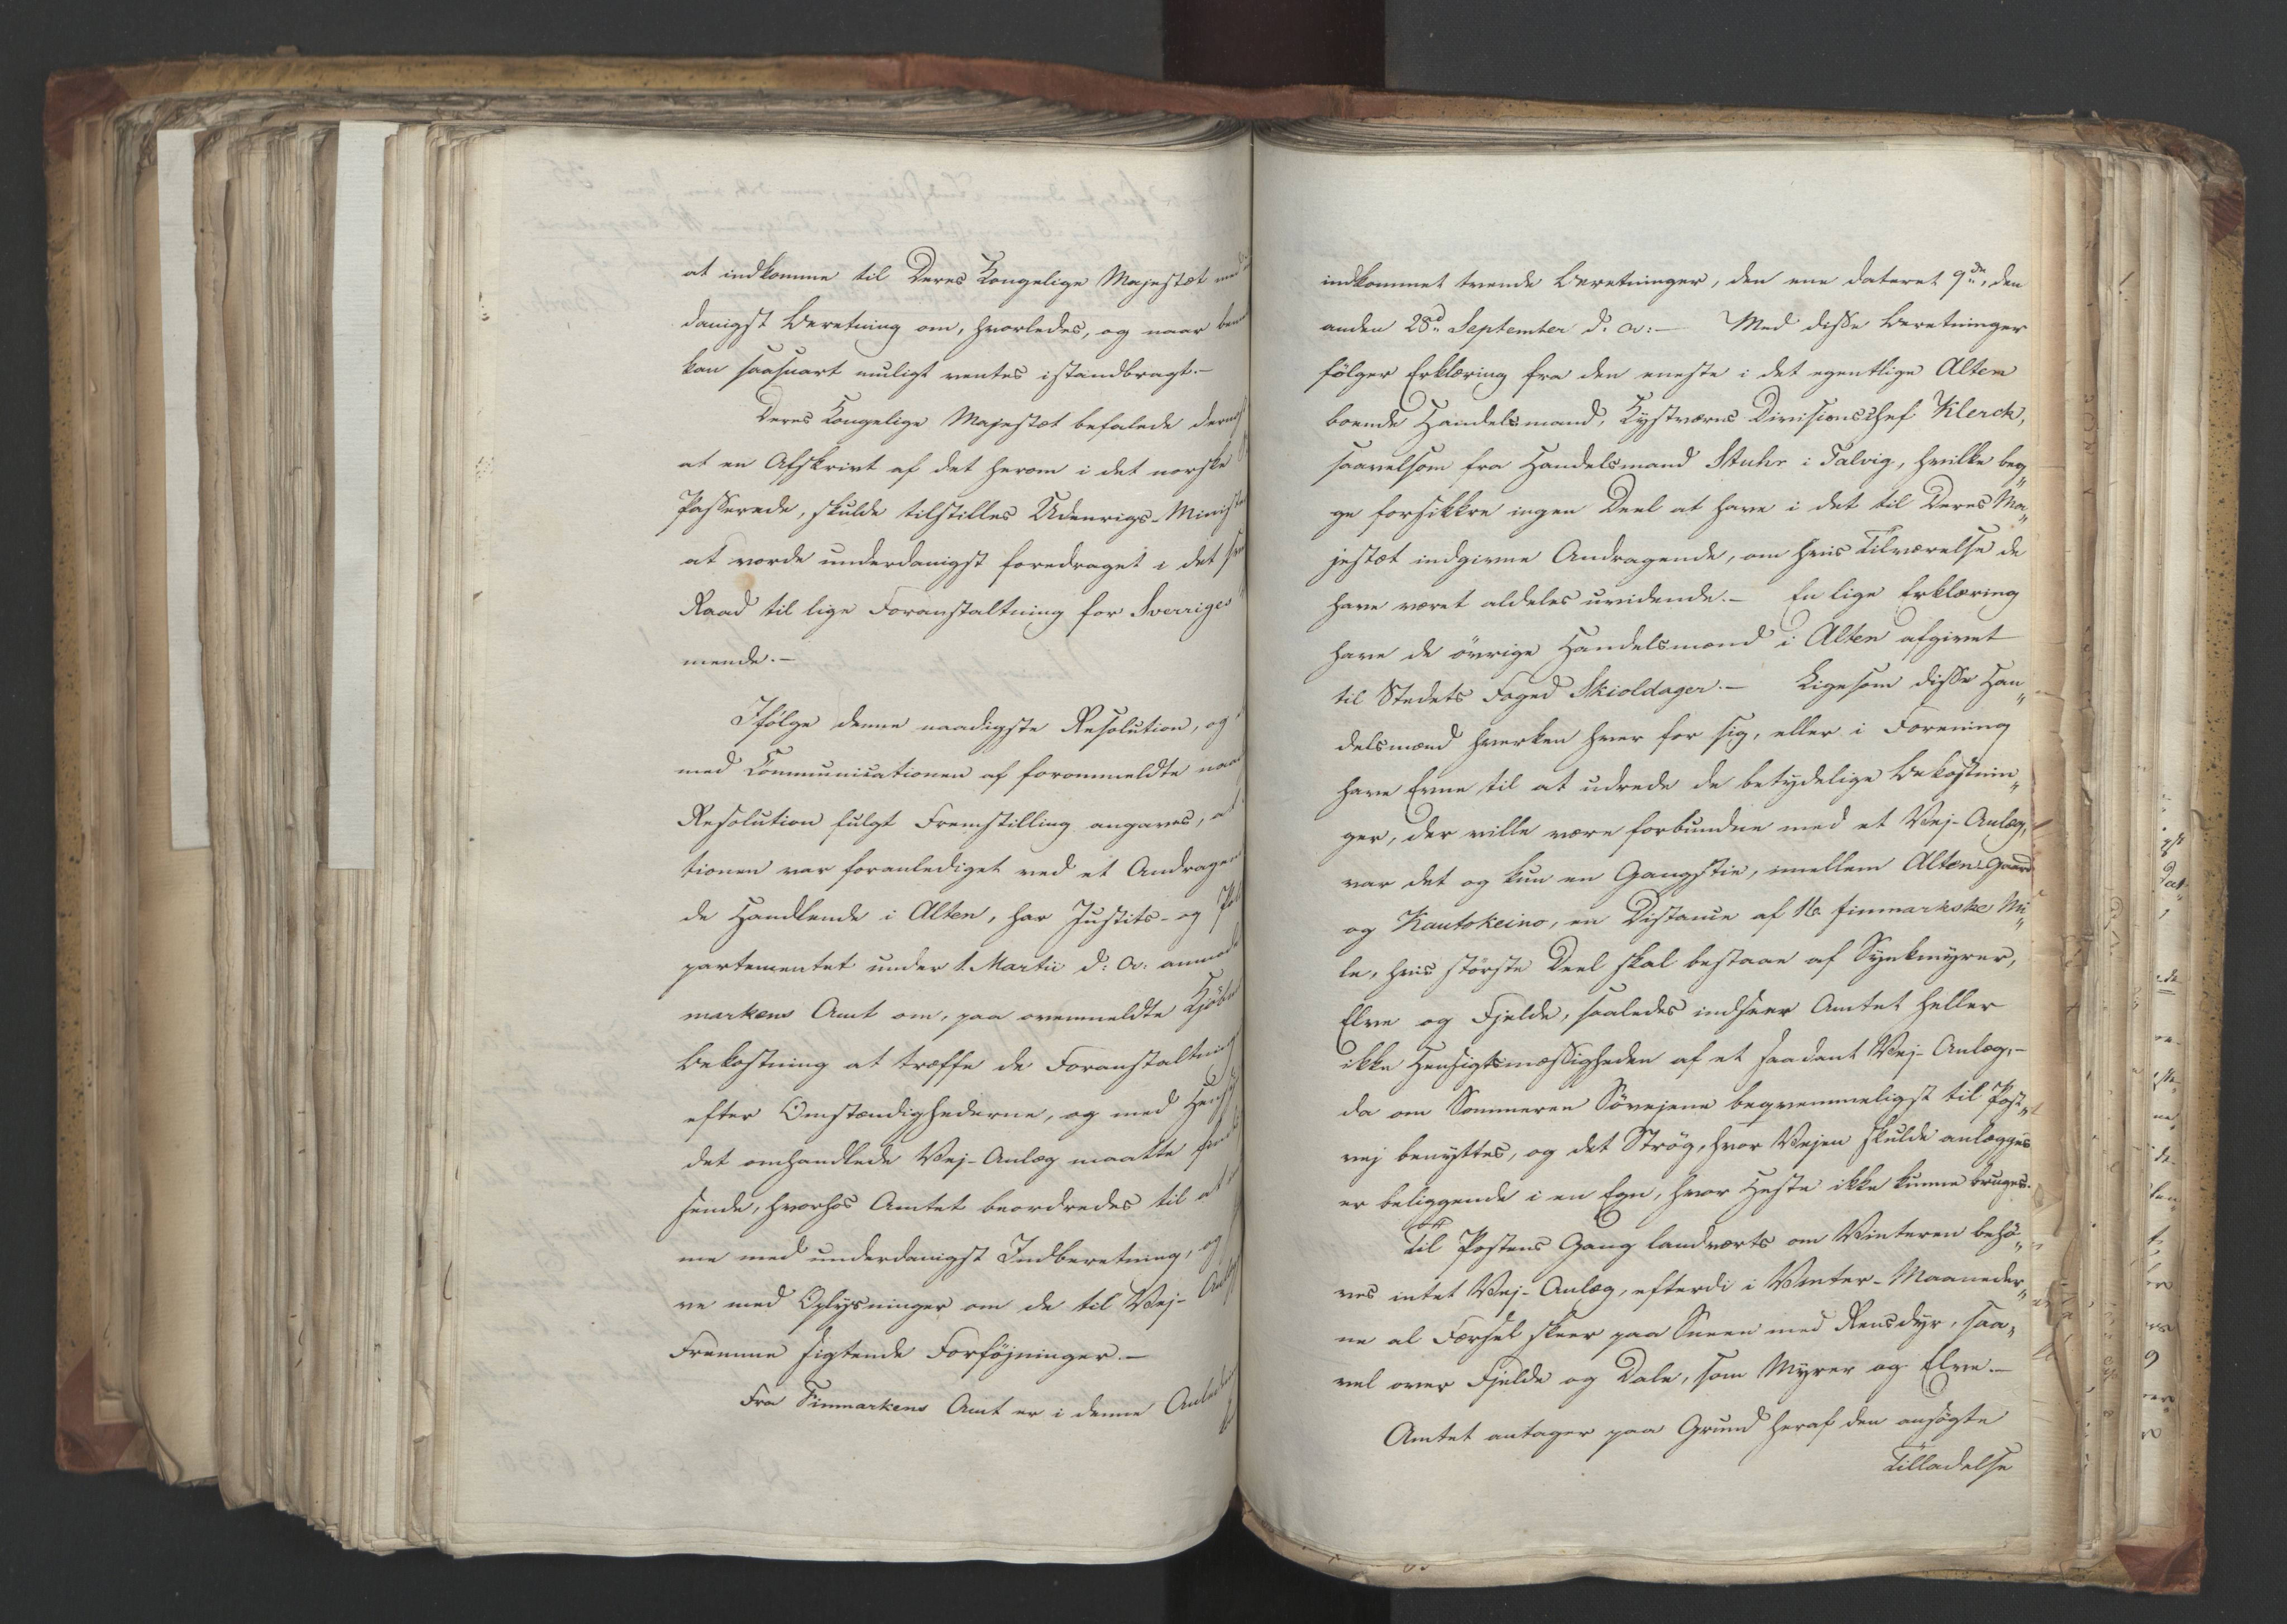 at indkomme til Deres Kongelige Majestæt med
danigst Beretning om, hvorledes, og naar
kan saasnart muligt ventes istandbragt.-
Deres Kongelige Majestæt befalede
at en Afskrivt af det herom i det norske
Passerede, skulde tilstilles Udenrigs-Minist
at vorde underdanigst foredraget i det
Raad til lige Foranstaltning for Sverriges
mende.-
Ifølge denne naadigste Resolution, og
med Communicationen af forommeldte naad
Resolution fulgt Fremstilling angaves, at
tionen var foranlediget ved et Andragen
de Handlende i Alten, har Justits- og Pol
partementet under 1. Martii d: A: anmod
markens Amt om, paa ovenmeldte Kjøb
Bekostning at træffe de Foranstaltning
efter Omstændighederne, og med Hens
det omhandlede Vej-Anlæg maatte
sende, hvorhos Amtet beordredes til at
me med underdanigst Indberetning, og
ve med Oplysninger om de til Vej- Anlæ
Fremme sigtende Forføjninger.-
Fra Finmarkens Amt er i denne Anledn
indkommet tvende Beretninger, den ene dateret 9de, den
anden 28d September d. A:- Med disse Beretninger
følger Erklæring fra den eneste i det egentlige Alten
boende Handelsmand, Kystværns Divisionschef Klerck,
saavelsom fra Handelsmand Stuhr i Talvig, hvilke beg„
ge forsikkre ingen Deel at have i det til Deres Ma„
jestæt indgivne Andragende, om hvis Tilværelse de
have været aldeles uvidende.- En lige Erklæring
have de øvrige Handelsmænd i Alten afgivet
til Stedets Foged Skioldager.- Ligesom disse Han„
delsmænd hverken hver for sig, eller i Forening
have Evne til at udrede de betydelige Bekostnin„
ger, der ville være forbundne med et Vej-Anlæg,
var det og kun en Gangstie, imellem Altens Gaard
og Kautokeino, en Distance af 16 finmarkske Mi„
le, hvis største Deel skal bestaae af Synkmyrer,
Elve og Fjelde, saaledes indseer Amtet heller
ikke Hensigtsmæssigheden af et saadant Vej-Anlæg,-
da om Sommeren Søvejene beqvemmeligst til Post„
vej benyttes, og det Strøg, hvor Vejen skulde anlægges
er beliggende i en Egn, hvor Heste ikke kunne bruges.
Til Postens Gang landværts om Vinteren behø„
ves intet Vej-Anlæg, efterdi i Vinter-Maaneder„
ne al Førsel skeer paa Sneen med Rensdyr, saa„
vel over Fjelde og Dale, som Myrer og Elve.-
Amtet antager paa Grund heraf den ansøgte
Tilladelse